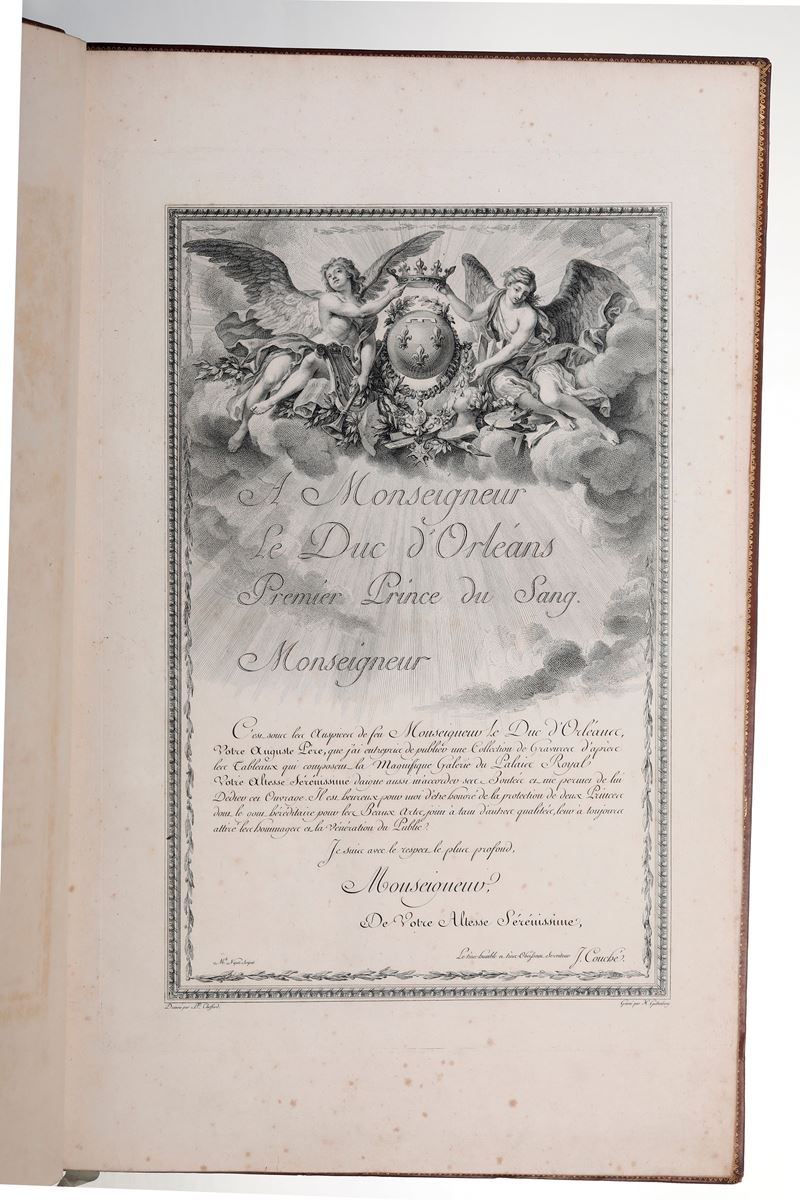 A Monseigneur
Le Duc d'Orléans
Premier Prince du Sang.
Monseigneur
C'est sous les Auspices de feu Monseigneur Le Duc d'Orléans,
Votre Auguste Pere, que j'ai entrepris de publier une Collection de Gravures d'après
les Tableaux qui composent la Magnifique Galerie du Palais Royal
Votre Altesse Sérénissime daigne aussi m'accorder ses Bontés et me permet de lui
Dédier cet Ouvrage. Il est heureux pour moi d'être honoré de la protection de deux Princes
dont le gout héréditaire pour les Beaux Arts, joint à tant d'autres qualités, leur à toujours
attiré les hommages et la Vénération du Public.
Je suis avec le respect le plus profond,
Monseigneur,
De Votre Altesse Sérénissime,
Le très humble et très Obéissant Serviteur J. Couché.
Dessiné par P. Choffard.
Gravé par H. Guttenberg